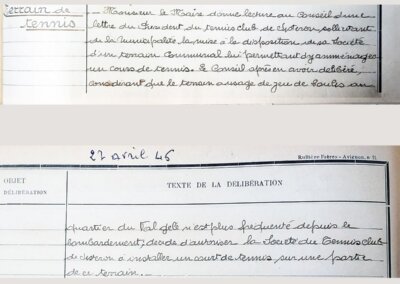 Terrain de
tennis
— Monsieur le Maire donne lecture au Conseil d'une
lettre du Président du tennis club de Sisteron, sollicitant
de la Municipalité la mise à la disposition de sa Société
d'un terrain Communal lui permettant d'y aménager
un cours de tennis. Le Conseil après en avoir délibéré,
considérant que le terrain à usage de jeu de boules au
27 avril 45
Rullière Frères - Avignon.
OBJET
DÉLIBÉRATION
TEXTE DE LA DÉLIBÉRATION
quartier du Val gelé n'est plus fréquenté depuis le
bombardement, décide d'autoriser la Société du Tennis Club
de Sisteron à installer un court de tennis sur une partie
de ce terrain.